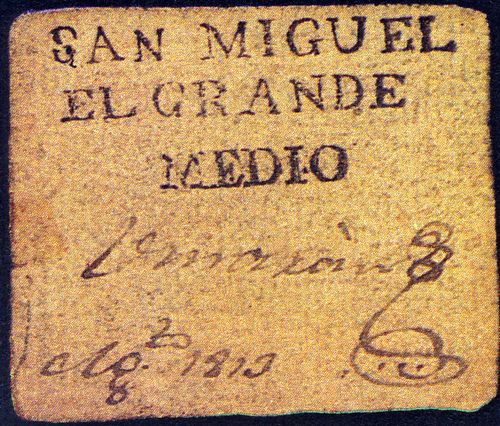 SAN MIGUEL
EL GRANDE
MEDIO
Agto. 1813